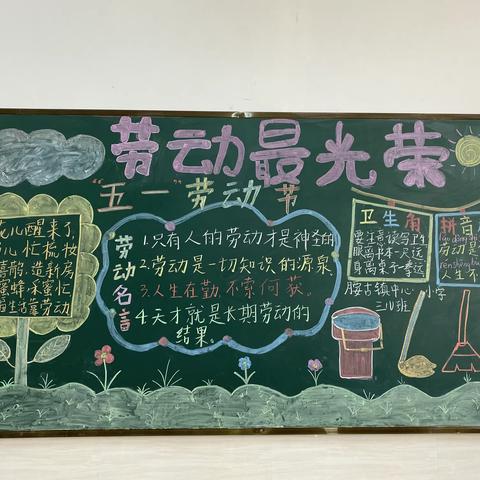 劳动最光荣
"五一"劳动节
花儿醒来了,
鸟儿忙梳妆
喜鹊造新房
蜜蜂采蜜忙
幸福生活靠劳动
劳动名言
1.只有人的劳动才是神圣的
2.劳动是一切知识的源泉,
3.人生在勤,不索何获。
4.天才就是长期劳动的
结果。
卫生角
要注意读写卫生
眼离书本一尺远
身离桌子一拳远
胺古镇中心小学
三(1)班
拼音
láo dòng
劳动
rén shēng bù
人生不